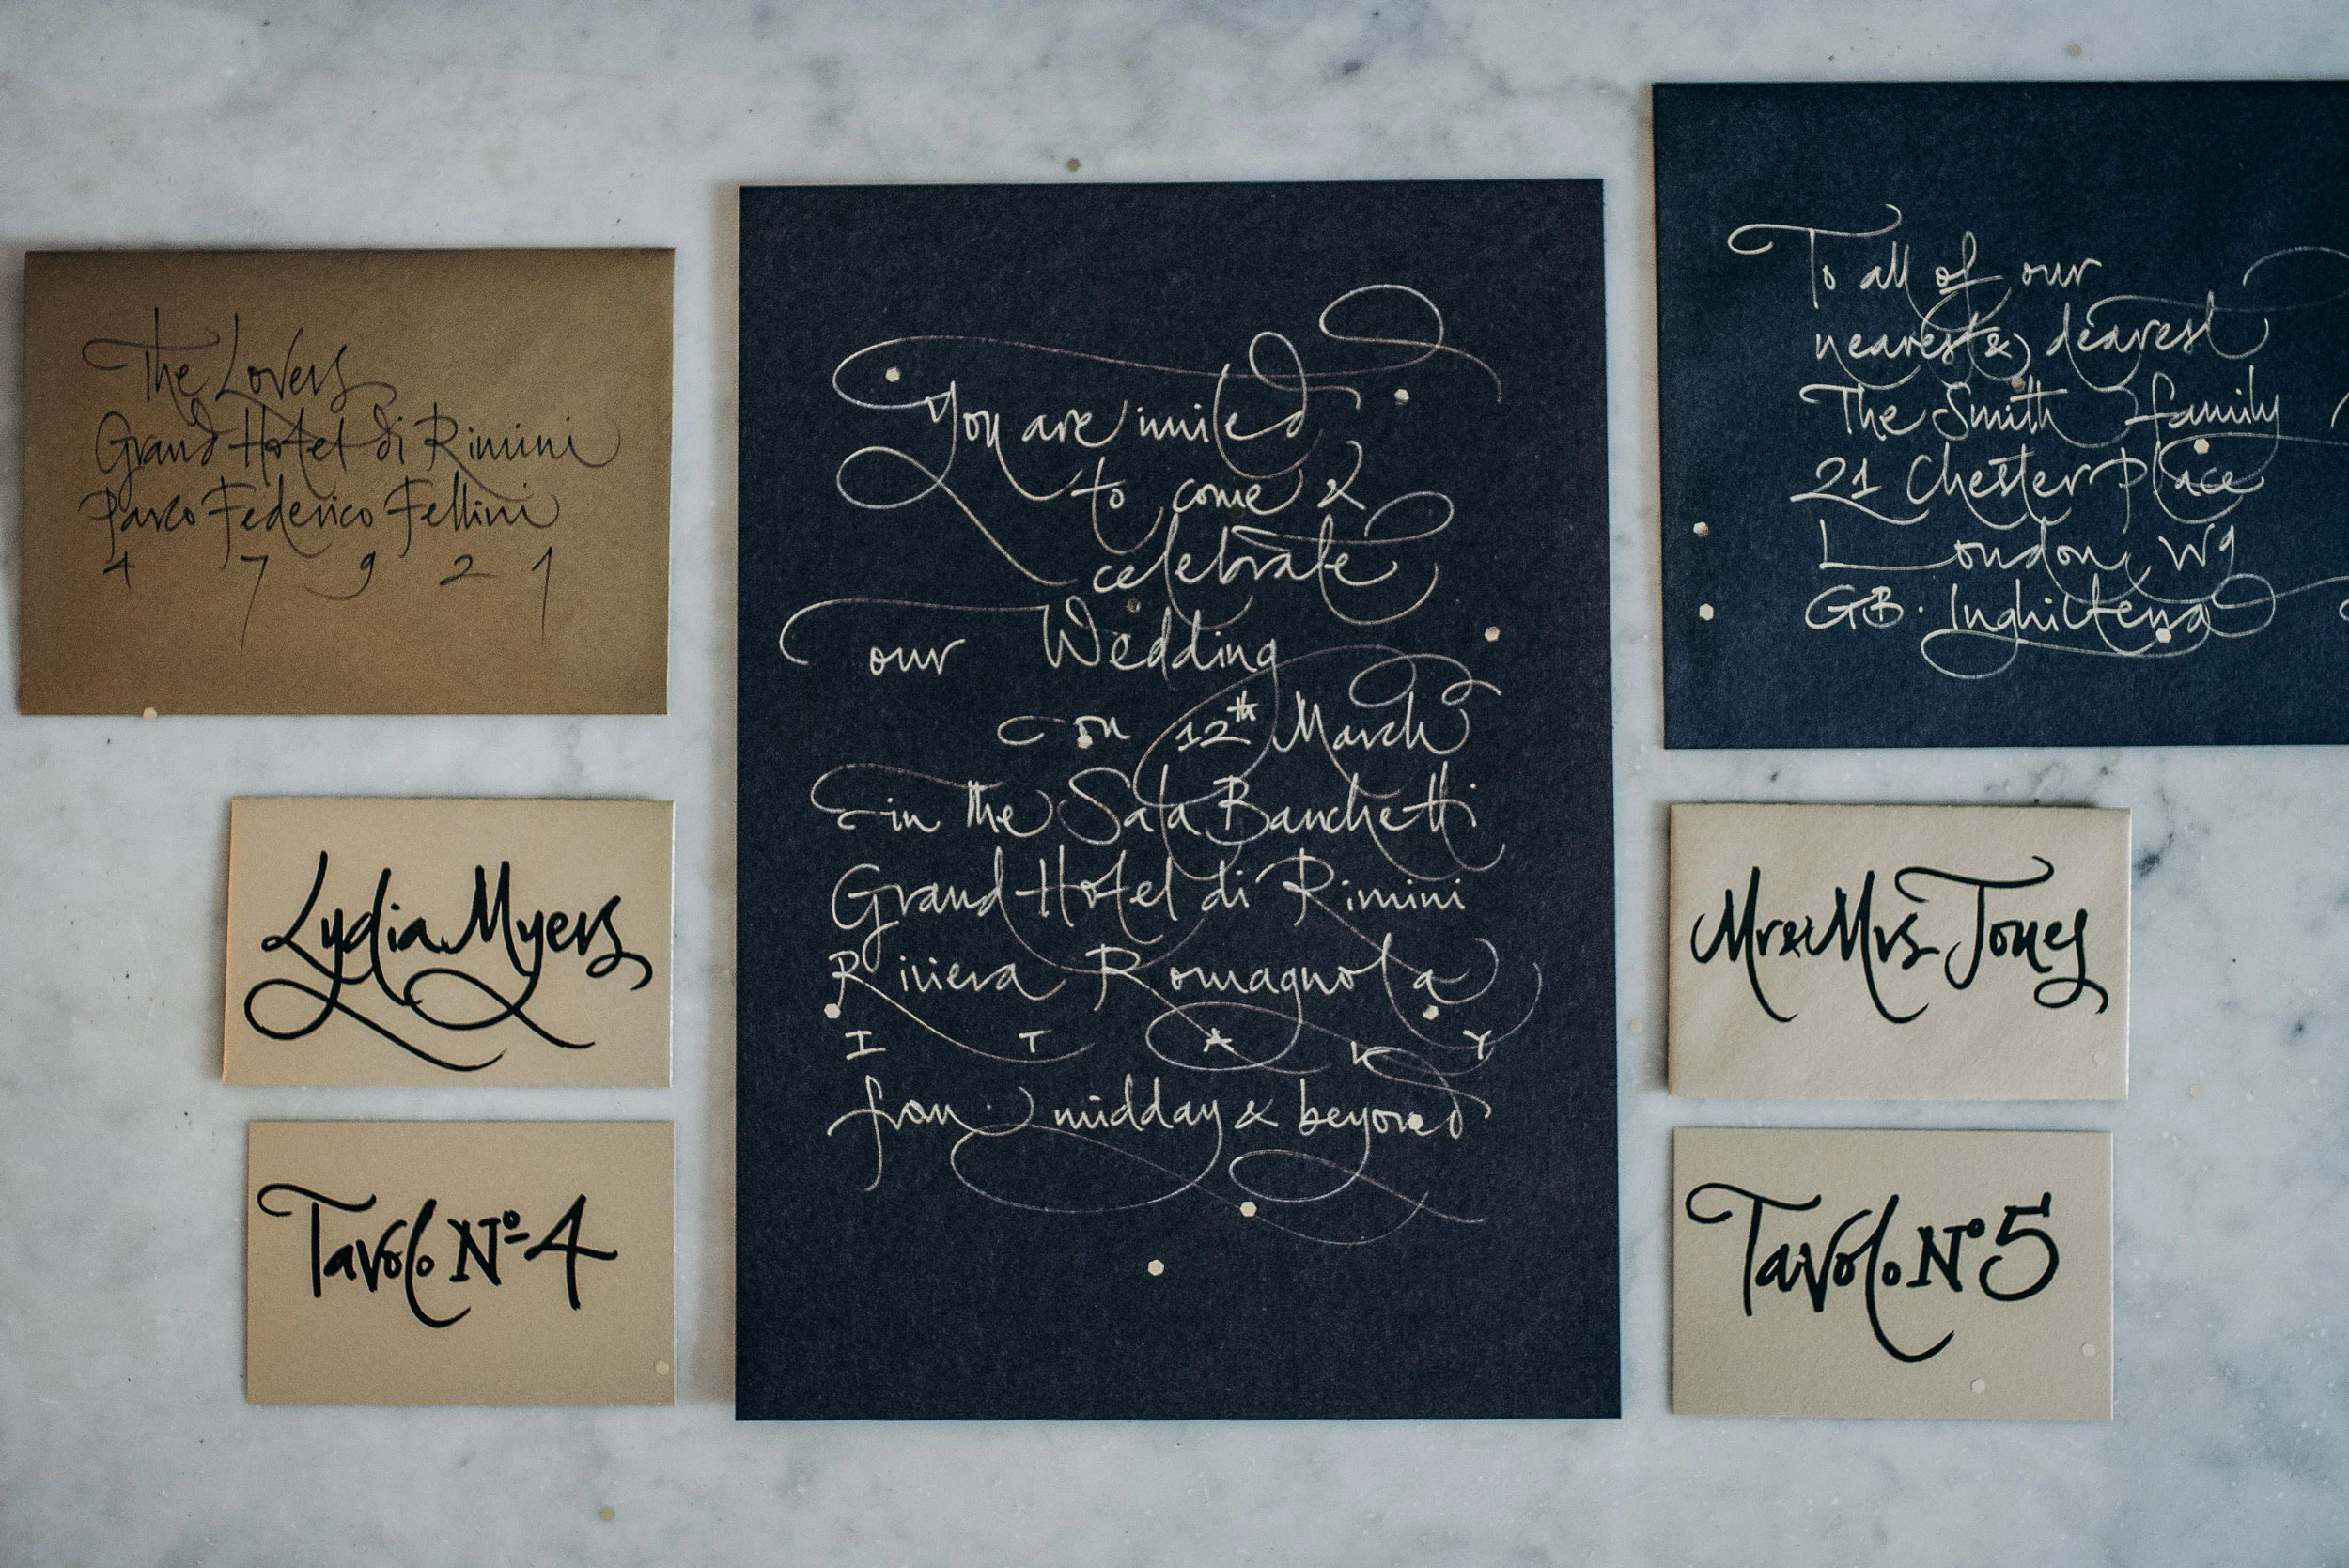 The Lovers
Grand Hotel di Rimini
Parco Federico Fellini
47921
Lydia Myers
Tavolo Nº 4
You are invited
to come &
celebrate
our Wedding
on 12th March
in the Sala Banchetti
Grand Hotel di Rimini
Riviera Romagnola
ITALY
from midday & beyond
To all of our
nearest & dearest
The Smith family
21 Chester Place
London, W9
GB. Inghilterra
Mr & Mrs Jones
Tavolo Nº 5